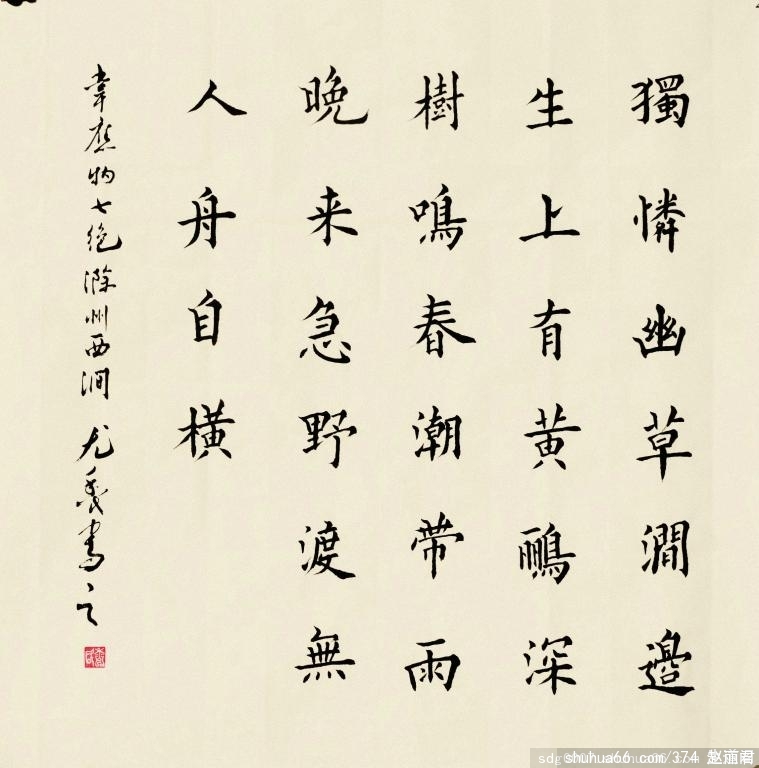 獨憐幽草澗邊
生上有黄鸝深
樹鳴春潮帶雨
晚来急野渡無
人舟自橫
韋應物七绝滁州西澗
書之
shuhua66.com/374